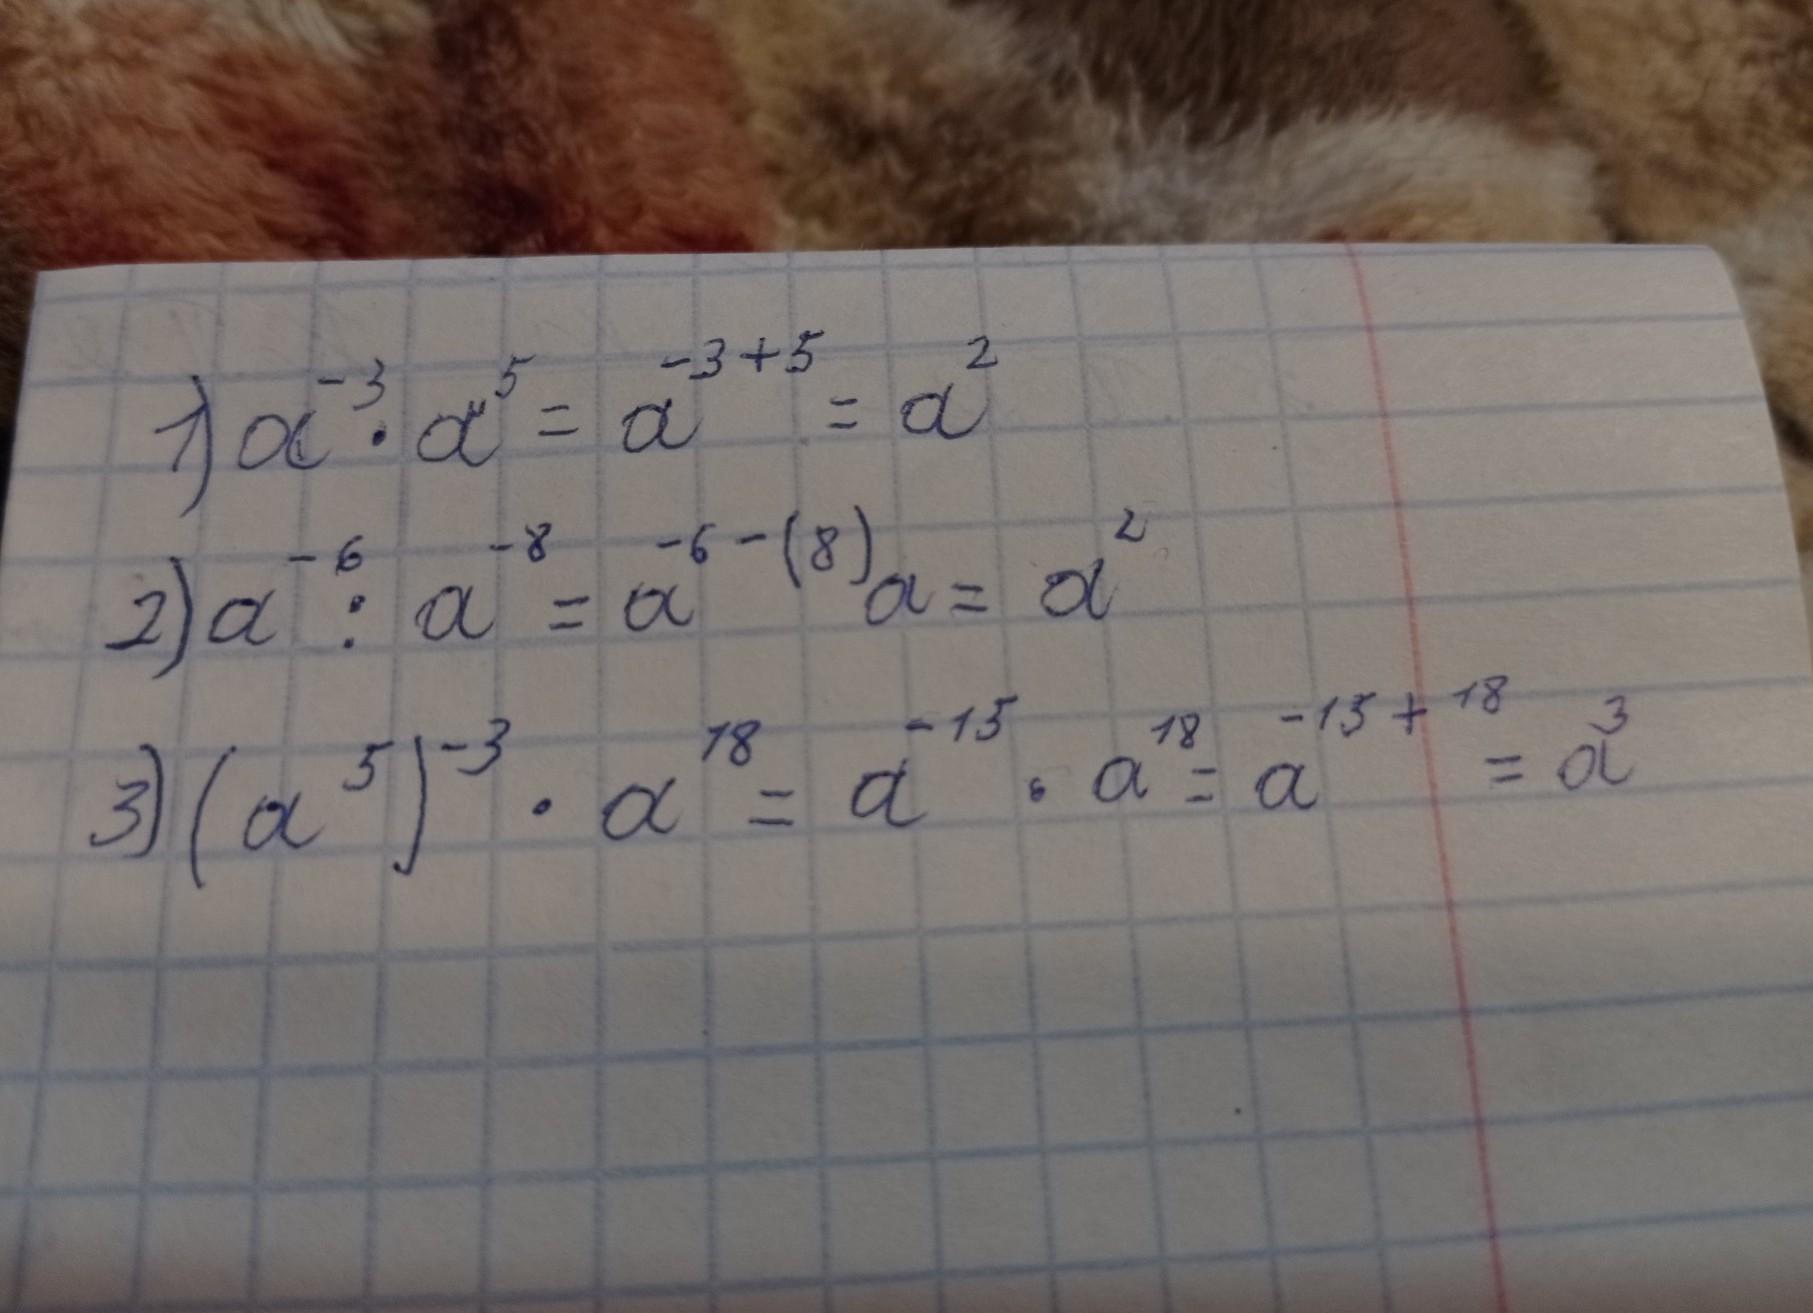 1) a⁻³ · a⁵ = a⁻³⁺⁵ = a²
2) a⁻⁶ : a⁻⁸ = a⁻⁶⁻⁽⁸⁾a = a²
3) (a⁵)⁻³ · a¹⁸ = a⁻¹⁵ · a¹⁸ = a⁻¹⁵⁺¹⁸ = a³